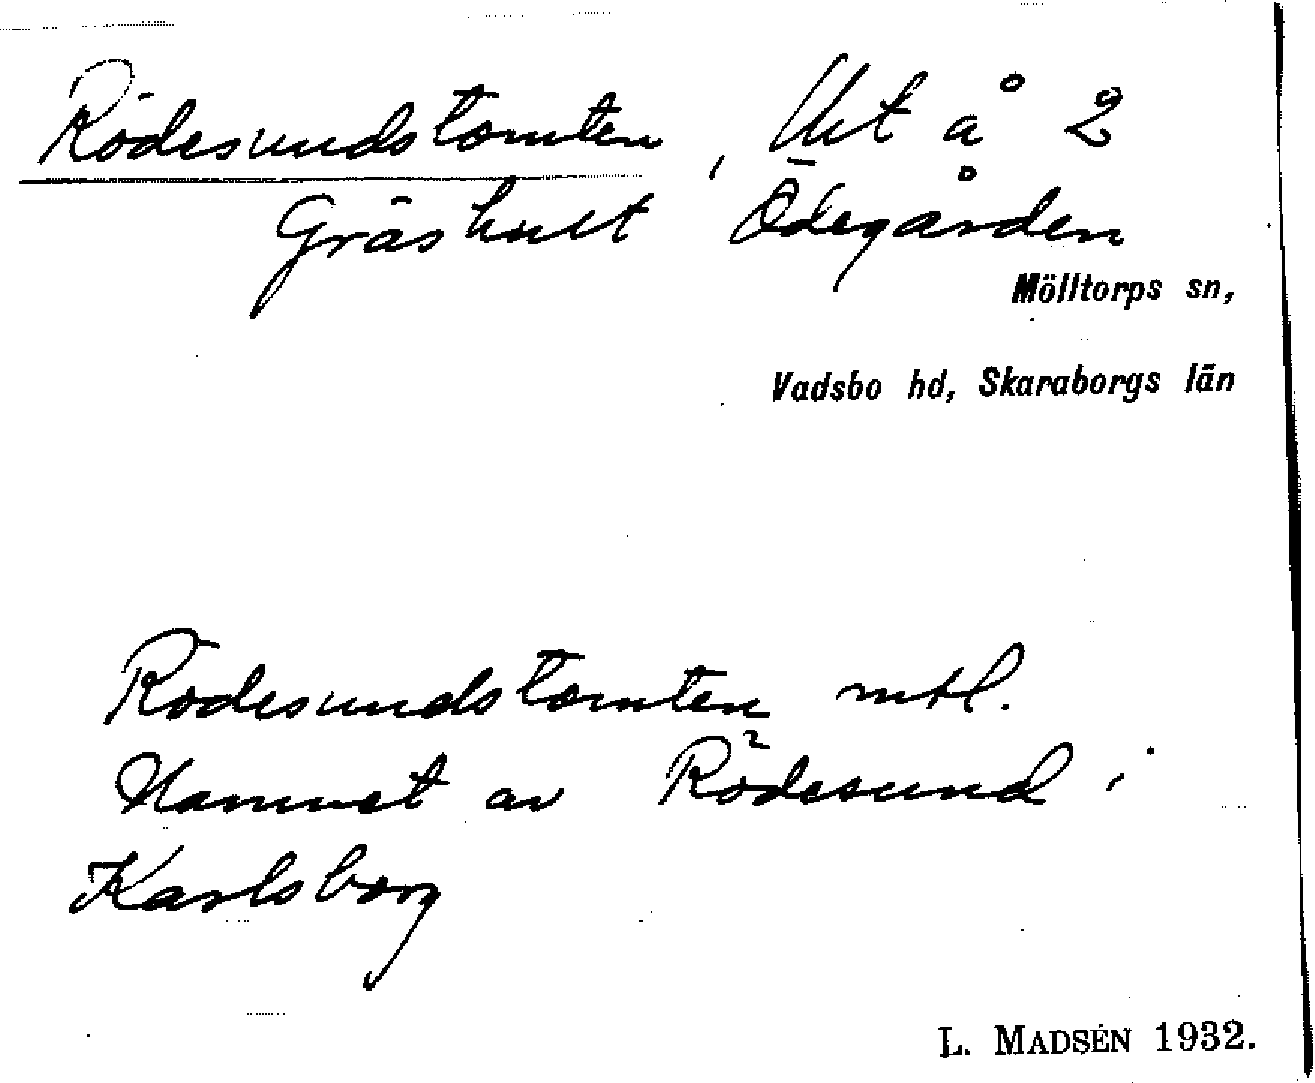 Rödesundstomten, Utt å 2
Gräshult Ödegården
Mölltorps sn,
Vadsbo hd, Skaraborgs län
Rödesundstomten mtl.
Namnet av Rödesund i
Karlsborg
L. MADSÉN 1932.